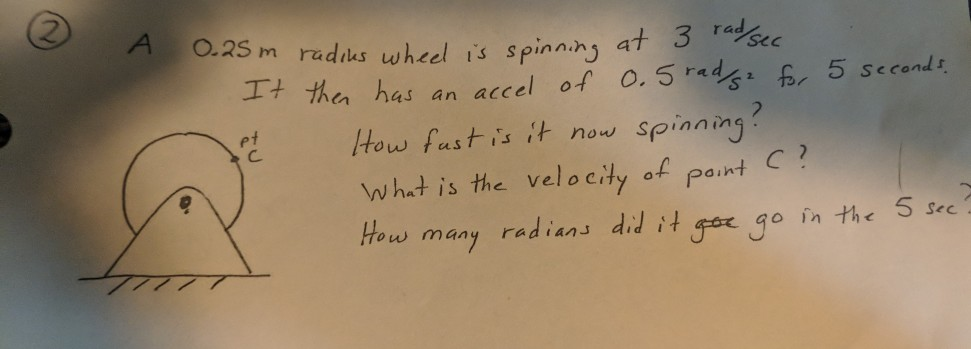 2
A 0.25 m radius wheel is spinning at 3 rad/sec
It then has an accel of 0.5 rad/s² for 5 seconds.
pt C
How fast is it now spinning?
What is the velocity of point C?
How many radians did it go in the 5 sec?